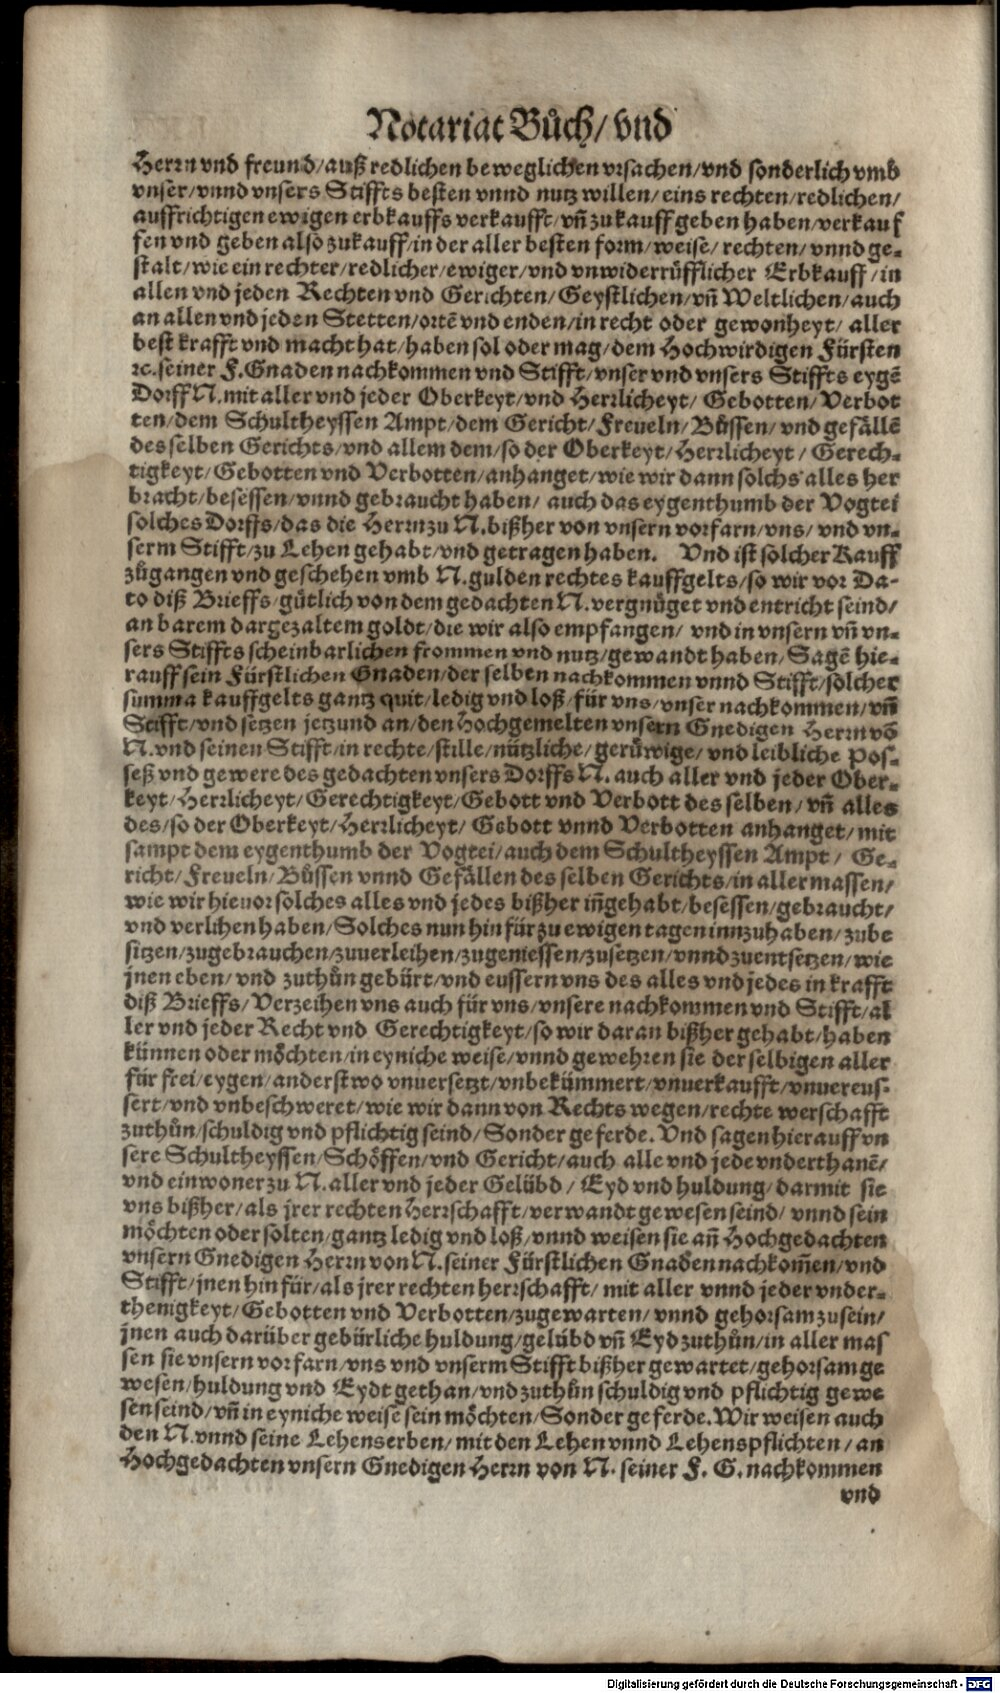 Notariat Bůch/ vnd
Herrn vnd freund/ auß redlichen beweglichen vrsachen/ vnd sonderlich vmb
vnser/ vnnd vnsers Stiffts besten vnnd nutz willen/ eins rechten/ redlichen/
auffrichtigen ewigen erbkauffs verkaufft/ vñ zu kauff geben haben/ verkauf
fen vnd geben also zu kauff/ in der aller besten form/ weise/ rechten/ vnnd ge-
stalt/ wie ein rechter/ redlicher/ ewiger/ vnd vnwiderrüfflicher Erbkauff/ in
allen vnd jeden Rechten vnd Gerichten/ Geystlichen/ vñ Weltlichen/ auch
an allen vnd jeden Stetten/ ortē vnd enden/ in recht oder gewonheyt/ aller
best krafft vnd macht hat/ haben sol oder mag/ dem Hochwirdigen Fürsten
ꝛc. seiner F. Gnaden nachkommen vnd Stifft/ vnser vnd vnsers Stiffts eygē
Dorff N. mit aller vnd jeder Oberkeyt/ vnd Herrlicheyt/ Gebotten/ Verbot
ten/ dem Schultheyssen Ampt/ dem Gericht/ Freueln/ Bůssen/ vnd gefällē
des selben Gerichts/ vnd allem dem/ so der Oberkeyt/ Herrlicheyt/ Gerech-
tigkeyt/ Gebotten vnd Verbotten/ anhanget/ wie wir dann solchs alles her
bracht/ besessen/ vnnd gebraucht haben/ auch das eygenthumb der Vogtei
solches Dorffs/ das die Herrn zu N. bißher von vnsern vorfarn/ vns/ vnd vn-
serm Stifft/ zu Lehen gehabt/ vnd getragen haben. Vnd ist solcher Kauff
zůgangen vnd geschehen vmb N. gulden rechtes kauffgelts/ so wir vor Da-
to diß Brieffs/ gütlich von dem gedachten N. vergnůget vnd entricht seind/
an barem dargezaltem goldt/ die wir also empfangen/ vnd in vnsern vñ vn-
sers Stiffts scheinbarlichen frommen vnd nutz/ gewandt haben/ Sagē hie-
rauff sein Fürstlichen Gnaden/ der selben nachkommen vnnd Stifft/ solcher
summa kauffgelts gantz quit/ ledig vnd loß/ für vns/ vnser nachkommen/ vñ
Stifft/ vnd setzen jetzund an/ den Hochgemelten vnsern Gnedigen Herrn vō
N. vnd seinen Stifft/ in rechte/ stille/ nützliche/ gerůwige/ vnd leibliche Pos-
seß vnd gewere des gedachten vnsers Dorffs N. auch aller vnd jeder Ober-
keyt/ Herrlicheyt/ Gerechtigkeyt/ Gebott vnd Verbott des selben/ vñ alles
des/ so der Oberkeyt/ Herrlicheyt/ Gebott vnnd Verbotten anhanget/ mit
sampt dem eygenthumb der Vogtei/ auch dem Schultheyssen Ampt/ Ge-
richt/ Freueln/ Bůssen vnnd Gefällen des selben Gerichts/ in aller massen/
wie wir hieuor solches alles vnd jedes bißher iñgehabt/ besessen/ gebraucht/
vnd verlihen haben/ Solches nun hinfür zu ewigen tagen innzuhaben/ zube
sitzen/ zugebrauchen/ zuuerleihen/ zugeniessen/ zusetzen/ vnnd zuentsetzen/ wie
jnen eben/ vnd zuthůn gebürt/ vnd eussern vns des alles vnd jedes in krafft
diß Brieffs/ Verzeihen vns auch für vns/ vnsere nachkommen vnd Stifft/ al
ler vnd jeder Recht vnd Gerechtigkeyt/ so wir daran bißher gehabt/ haben
künnen oder möchten/ in eyniche weise/ vnnd gewehren sie der selbigen aller
für frei/ eygen/ anderstwo vnuersetzt/ vnbekümmert/ vnuerkaufft/ vnuereus-
sert/ vnd vnbeschweret/ wie wir dann von Rechts wegen/ rechte werschafft
zuthůn/ schuldig vnd pflichtig seind/ Sonder geferde. Vnd sagen hierauff vn
sere Schultheyssen/ Schöffen/ vnd Gericht/ auch alle vnd jede vnderthanē/
vnd einwoner zu N. aller vnd jeder Gelübd/ Eyd vnd huldung/ darmit sie
vns bißher/ als jrer rechten Herrschafft/ verwandt gewesen seind/ vnnd sein
möchten oder solten/ gantz ledig vnd loß/ vnnd weisen sie añ Hochgedachten
vnsern Gnedigen Herrn von N. seiner Fürstlichen Gnaden nachkom̃en/ vnd
Stifft/ jnen hinfür/ als jrer rechten herrschafft/ mit aller vnnd jeder vnder-
thenigkeyt/ Gebotten vnd Verbotten/ zugewarten/ vnnd gehorsam zusein/
jnen auch darüber gebürliche huldung/ gelübd vñ Eyd zuthůn/ in aller mas
sen sie vnsern vorfarn/ vns vnd vnserm Stifft bißher gewartet/ gehorsam ge
wesen/ huldung vnd Eydt gethan/ vnd zuthůn schuldig vnd pflichtig gewe
sen seind/ vñ in eyniche weise sein möchten/ Sonder geferde. Wir weisen auch
den N. vnnd seine Lehenserben/ mit den Lehen vnnd Lehenspflichten/ an
Hochgedachten vnsern Gnedigen Herrn von N. seiner F. G. nachkommen
vnd
Digitalisierung gefördert durch die Deutsche Forschungsgemeinschaft - DFG